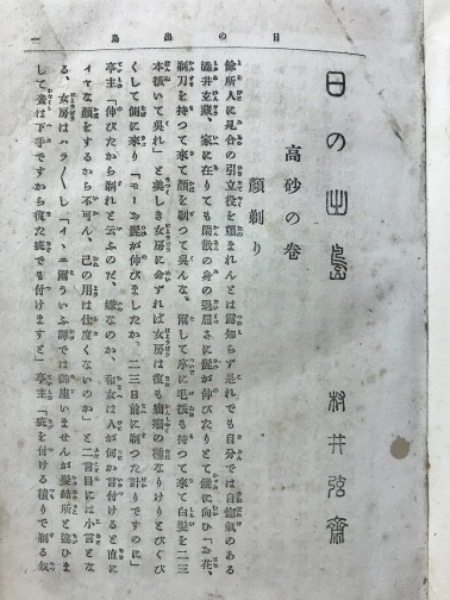 日の出島
一
日の出島
村井弦齋
高砂の巻
顔剃り
餘所人に見合の引立役を頼まれんとは露知らず是れでも自分では自惚氣のある
磯井立藏、家に在りても閑散の身の退屈さに髭が伸びたりとて鏡に向ひ「お花、
剃刀を持つて來て顔を剃つて呉んな、而して序に毛拔も持つて來て白髮を二三
本拔いて呉れ」と美しき女房に命ずれば女房は復も癇癪の種なりけりとびくび
くして側に來り「モーお髭が伸びましたか、二三日前に剃つた計りですのに」
亭主「伸びたから剃れと云ふのだ、嫌なのか、和女は人が何か言付けると直に
イヤな顔をするから不可ん、己の用は仕度くないのか」と二言目には小言とな
る、女房はハラ〳〵し「イヽエ爾ういふ譯では御座いませんが髮結所と違ひま
して妾は下手ですから復た疵でも付けますと」亭主「疵を付ける積りで剃る奴